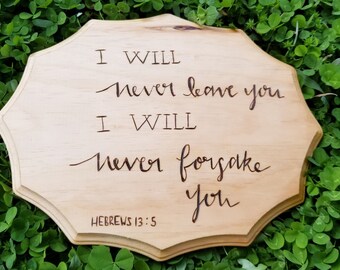 I WILL
never leave you
I WILL
never forsake
you
HEBREWS 13:5